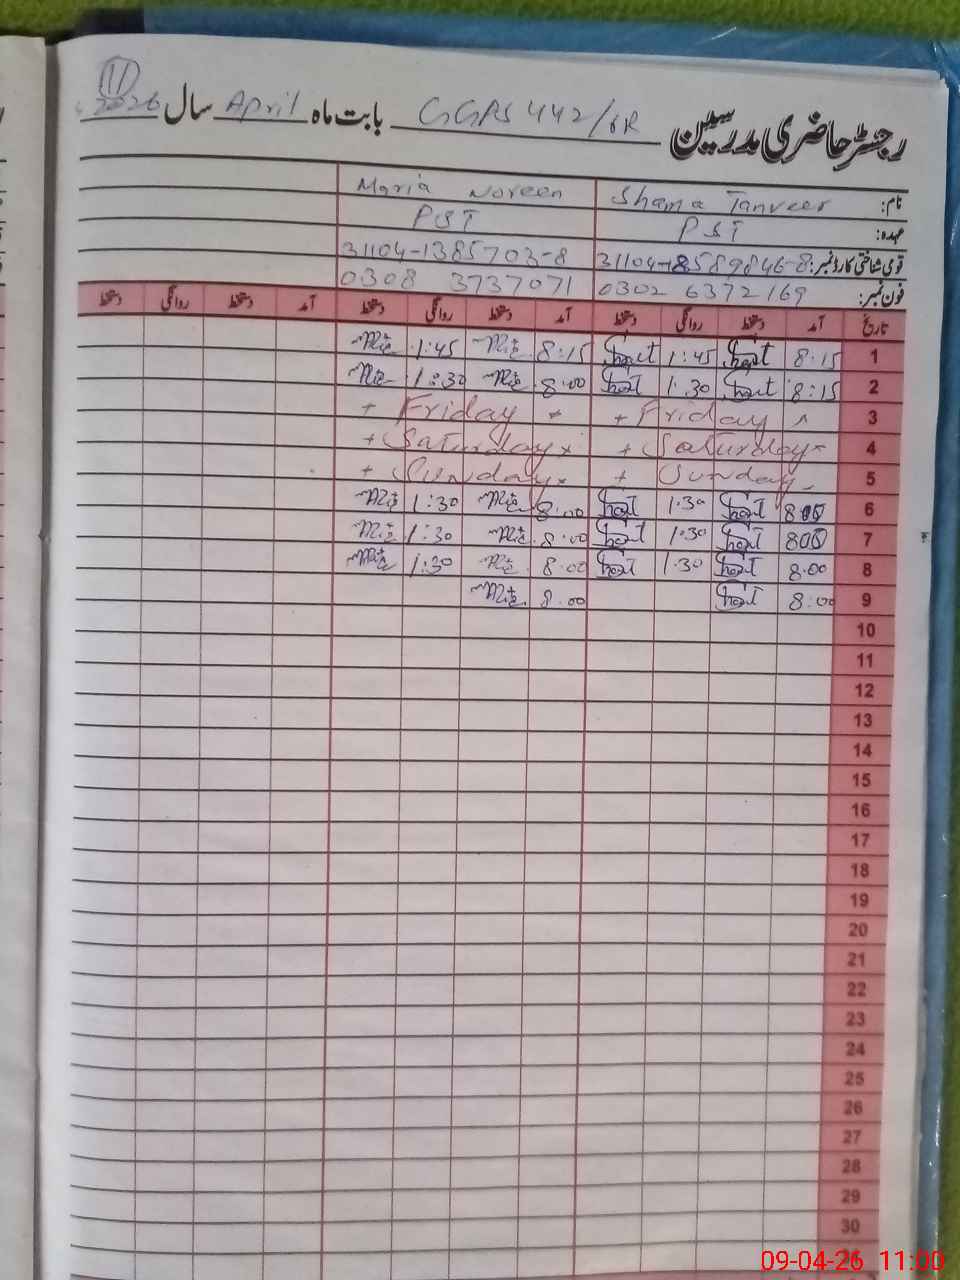 11
رجسٹر حاضری مدرسین GGPS 442/6R بابت ماہ April سال 2026
نام: Shama Tanveer Maria Noreen
عہدہ: PST PST
قومی شناختی کارڈ نمبر: 31104-8589846-8 31104-1385703-8
فون نمبر: 0302 6372169 0308 3737071
تاریخ آمد دستخط روانگی دستخط آمد دستخط روانگی دستخط آمد دستخط روانگی دستخط
1 8:15 1:45 8:15 1:45
2 8:15 1.30 8.00 1:30
3 Friday + Friday +
4 Saturday + Saturday +
5 Sunday + Sunday +
6 8:00 1.30 8.00 1:30
7 800 1:30 8.00 1:30
8 8.00 1.30 8.00 1:30
9 8:00 8.00
10
11
12
13
14
15
16
17
18
19
20
21
22
23
24
25
26
27
28
29
30
09-04-26 11:00